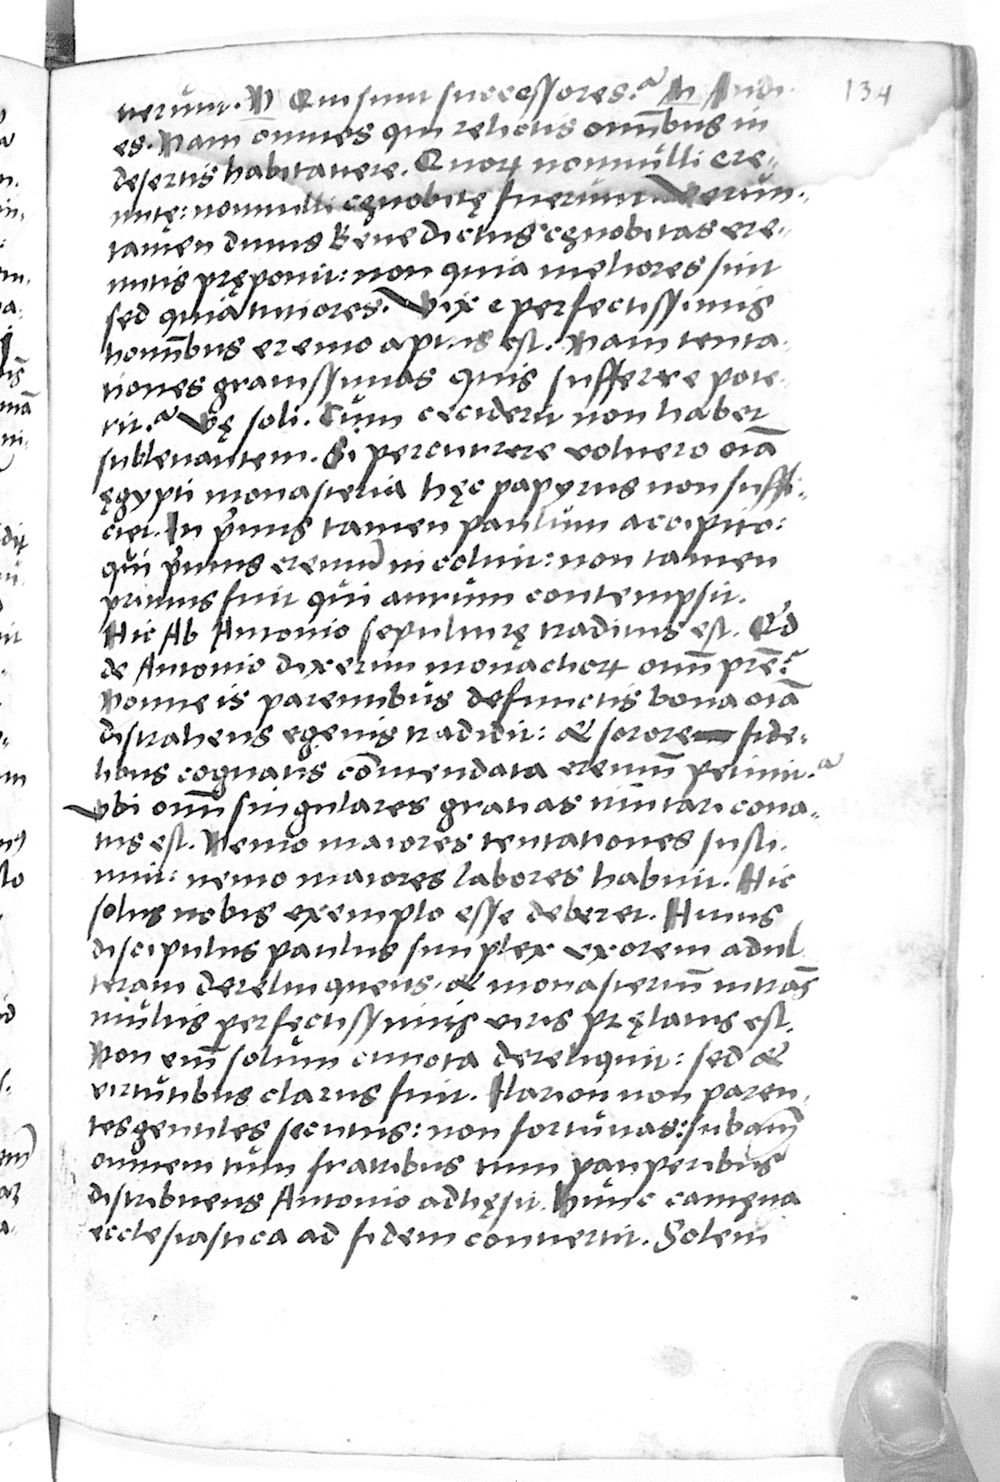 134
uerunt. N Qui sunt successores? An Audi-
es. Nam omnes qui relictis omibus in
desertis habitauere. Quoꝝ nonnulli ere-
mitę: nonnulli cęnobitę fuerunt. Verun-
tamen diuus Benedictus cęnobitas ere-
mitis pręponit: non quia meliores sint
sed quia tutiores. Vix e perfectissimis
homībus eremo aptus est. Nam tenta-
tiones grauissimas quis sufferre pote-
rit? Vę soli. Cum ceciderit non habet
subleuantem. Si percurrere voluero oīa
ęgypti monasteria hęc papyrus non suffi-
ciet. In pͥmis tamen paulum accipito:
qui pͥmus eremū incoluit: non tamen
primus fuit qui aurum contempsit.
Hic Ab Antonio sepulturę traditus est. Qͥd
de Antonio dixerim monachoꝝ oīm prē?
Nonne is parentibus defunctis bona oīa
distrahens egenis tradidit: & sorore fide-
libus cognatis cōmendata eremū petiuit?
Vbi oīm singulares gratias imitari cona-
tus est. Nemo maiores tentationes susti-
nuit: nemo maiores labores habuit. Hic
solus nobis exemplo esse deberet. Huius
discipulus paulus simplex vxorem adul
teram derelinquens. & monasteriū intrās
multis perfęctissimis viris pręlatus est.
Non em̄ solum cuncta dereliquit: sed &
virtutibus clarus fuit. Ilarion non paren-
tes gentiles secutus: non fortunas: subam̄
omnem tum fratribus tum pauperibus
distribuens Antonio adhęsit. Hunc camęna
ecclesiastica ad fidem conuertit. Solem